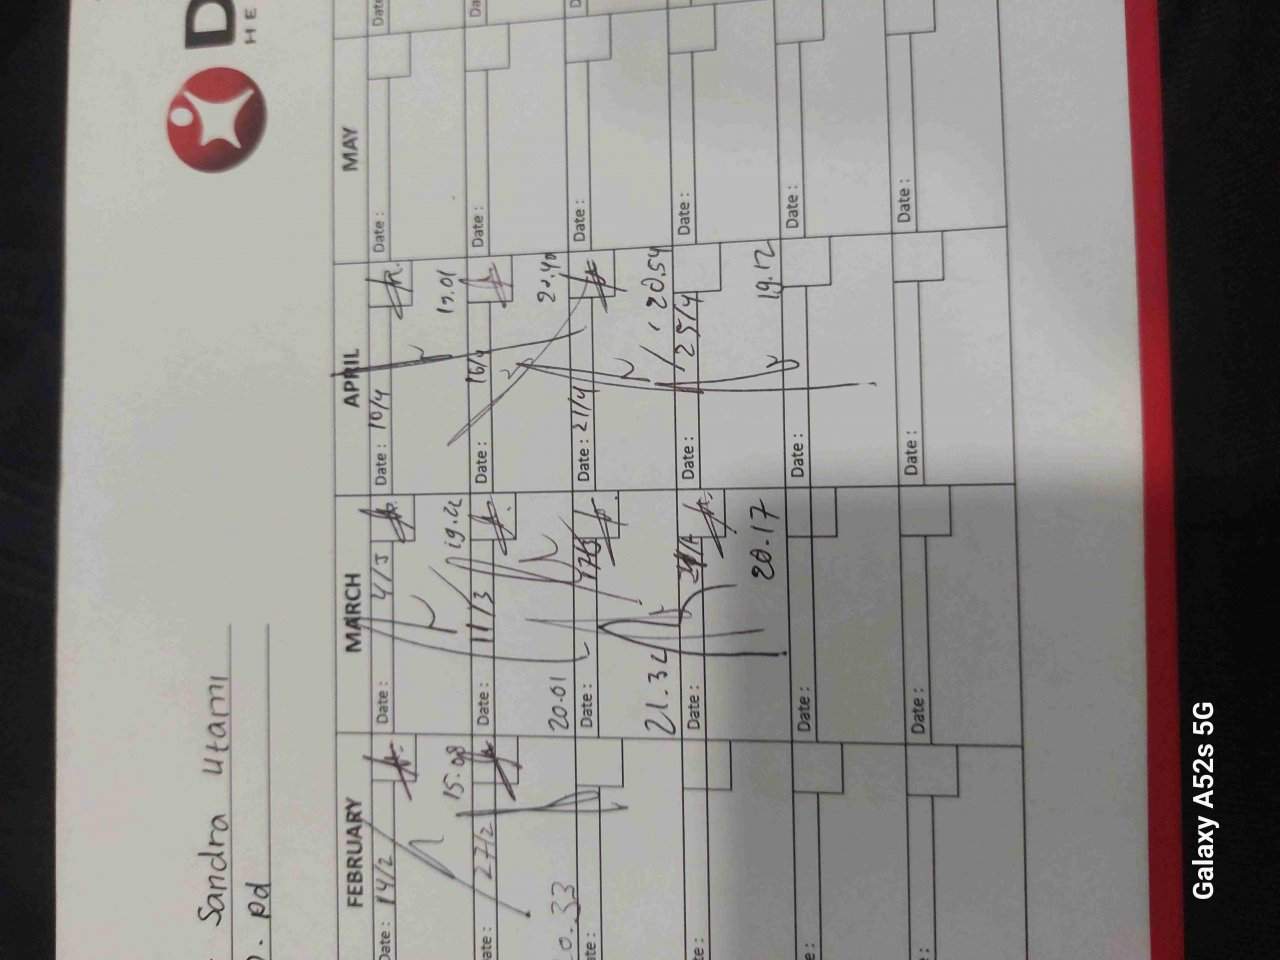 D
HE
Sandra Utami
Pd
FEBRUARY MARCH APRIL MAY
Date: 14/2 Date: 4/3 Date: 10/4 Date:
15.08 19.22 17.01
ate: 27/2 Date: 11/3 Date: 16/4 Date:
0.33 20.01 20.40
ate: Date: Date: 21/4 Date:
21.32 20.54
te: Date: Date: 25/4 Date:
20.17 19.12
e: Date: Date: Date:
: Date: Date: Date:
Galaxy A52s 5G